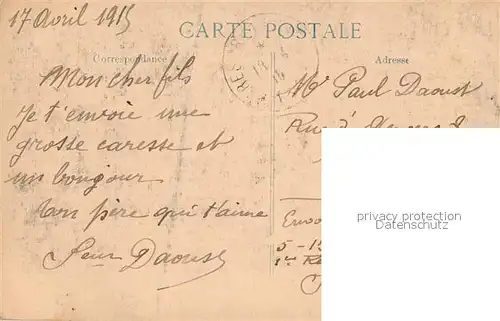 17 Avril 1915
CARTE POSTALE
Correspondance
Adresse
Mon cher fils
Je t'envoie une
grosse caresse et
un bonjour
ton père qui t'aime
Daoust
Mr Paul Daoust
Rue
privacy protection
Datenschutz
5-15